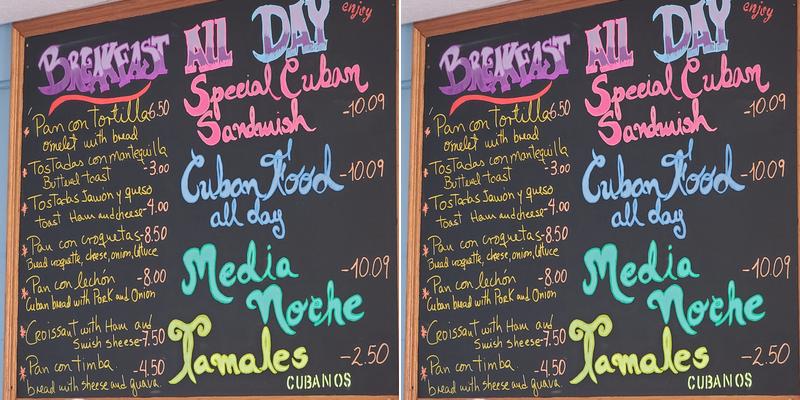 BREAKFAST ALL DAY enjoy
Pan con tortilla 6.50
omelet with bread
Tostadas con mantequilla
Buttered toast -3.00
Tostadas Jamón y queso
toast Ham and cheese -4.00
Pan con croquetas -8.50
Bread croquette, cheese, onion, lettuce
Pan con lechón -8.00
Cuban bread with Pork and Onion
Croissant with Ham and
Swish sheese -7.50
Pan con timba -4.50
bread with sheese and guava.
Special Cuban
Sandwish -10.09
Cuban Food -10.09
all day
Media
Noche -10.09
Tamales -2.50
CUBANOS
BREAKFAST ALL DAY enjoy
Pan con tortilla 6.50
omelet with bread
Tostadas con mantequilla
Buttered toast -3.00
Tostadas Jamón y queso
toast Ham and cheese -4.00
Pan con croquetas -8.50
Bread croquette, cheese, onion, lettuce
Pan con lechón -8.00
Cuban bread with Pork and Onion
Croissant with Ham and
Swish sheese -7.50
Pan con timba -4.50
bread with sheese and guava.
Special Cuban
Sandwish -10.09
Cuban Food -10.09
all day
Media
Noche -10.09
Tamales -2.50
CUBANOS